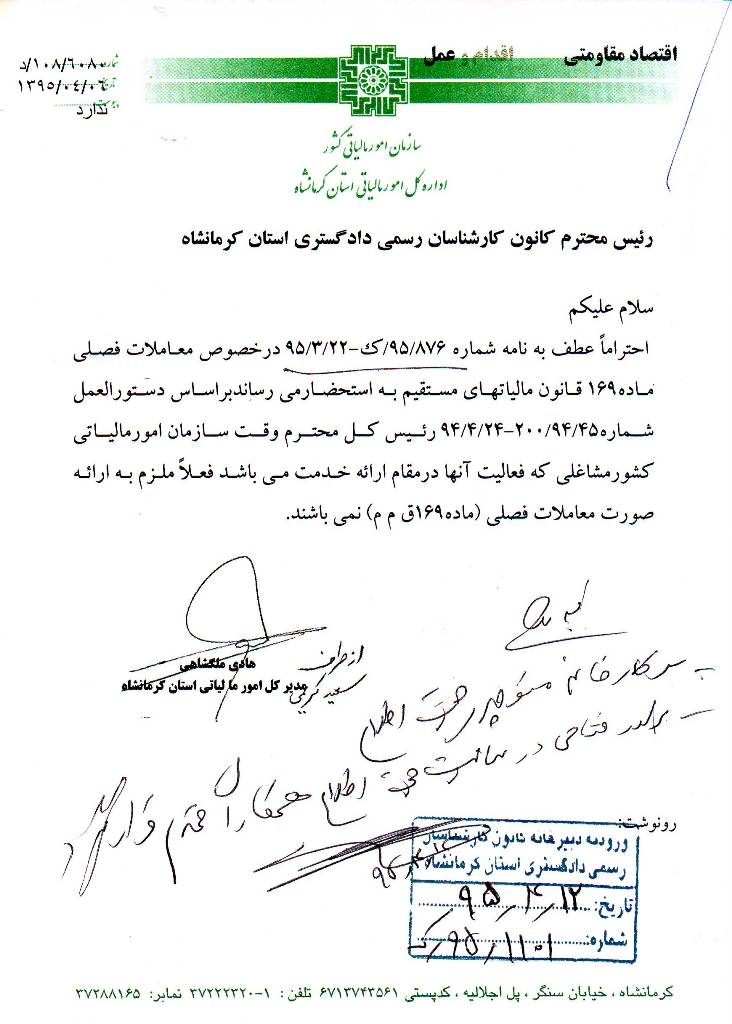 اقتصاد مقاومتی اقدام و عمل
شماره: ۱۰۸/۶۰۸۰/د
تاریخ: ۱۳۹۵/۰۴/۰۶
پیوست: ندارد
سازمان امور مالیاتی کشور
اداره کل امور مالیاتی استان کرمانشاه
رئیس محترم کانون کارشناسان رسمی دادگستری استان کرمانشاه
سلام علیکم
احتراماً عطف به نامه شماره ۹۵/۸۷۶/ک-۹۵/۳/۲۲ درخصوص معاملات فصلی
ماده۱۶۹ قانون مالیاتهای مستقیم به استحضارمی رساندبراساس دستورالعمل
شماره۲۰۰/۹۴/۴۵-۹۴/۴/۲۴ رئیس کل محترم وقت سازمان امورمالیاتی
کشورمشاغلی که فعالیت آنها درمقام ارائه خدمت می باشد فعلاً ملزم به ارائه
صورت معاملات فصلی (ماده۱۶۹ق م م) نمی باشند.
از طرف
سعید کریمی
هادی ملگشاهی
مدیر کل امور مالیاتی استان کرمانشاه
سرکار خانم منوچهری جهت اطلاع
در سایت جهت اطلاع همکاران محترم قرار گیرد
رونوشت:
ورود به دبیرخانه کانون کارشناسان
رسمی دادگستری استان کرمانشاه
تاریخ: ۹۵/۴/۱۲
شماره: ۹۵/۱۱۰۱/ک
کرمانشاه ، خیابان سنگر ، پل اجلالیه ، کدپستی ۶۷۱۳۷۴۳۵۶۱ تلفن : ۱-۳۷۲۲۲۳۲۰ نمابر: ۳۷۲۸۸۱۶۵